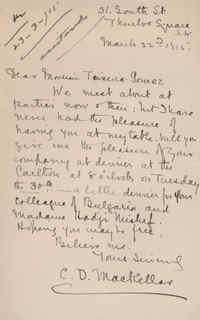 21. South St.
Thurloe Square
S.W.
March 22nd 1915.
23-3-915
Dear Monsieur Teixeira Gomez
We meet about at
parties now & then; but I have
never had the pleasure of
having you at my table. Will you
give me the pleasure of your
company at dinner at the
Carlton at 8 o'clock on Tuesday
the 30th — a little dinner for your
colleague of Bulgaria and
Madame Hadji Mischef.
Hoping you may be free.
Believe me
Yours Sincerely
C. D. MacKellar